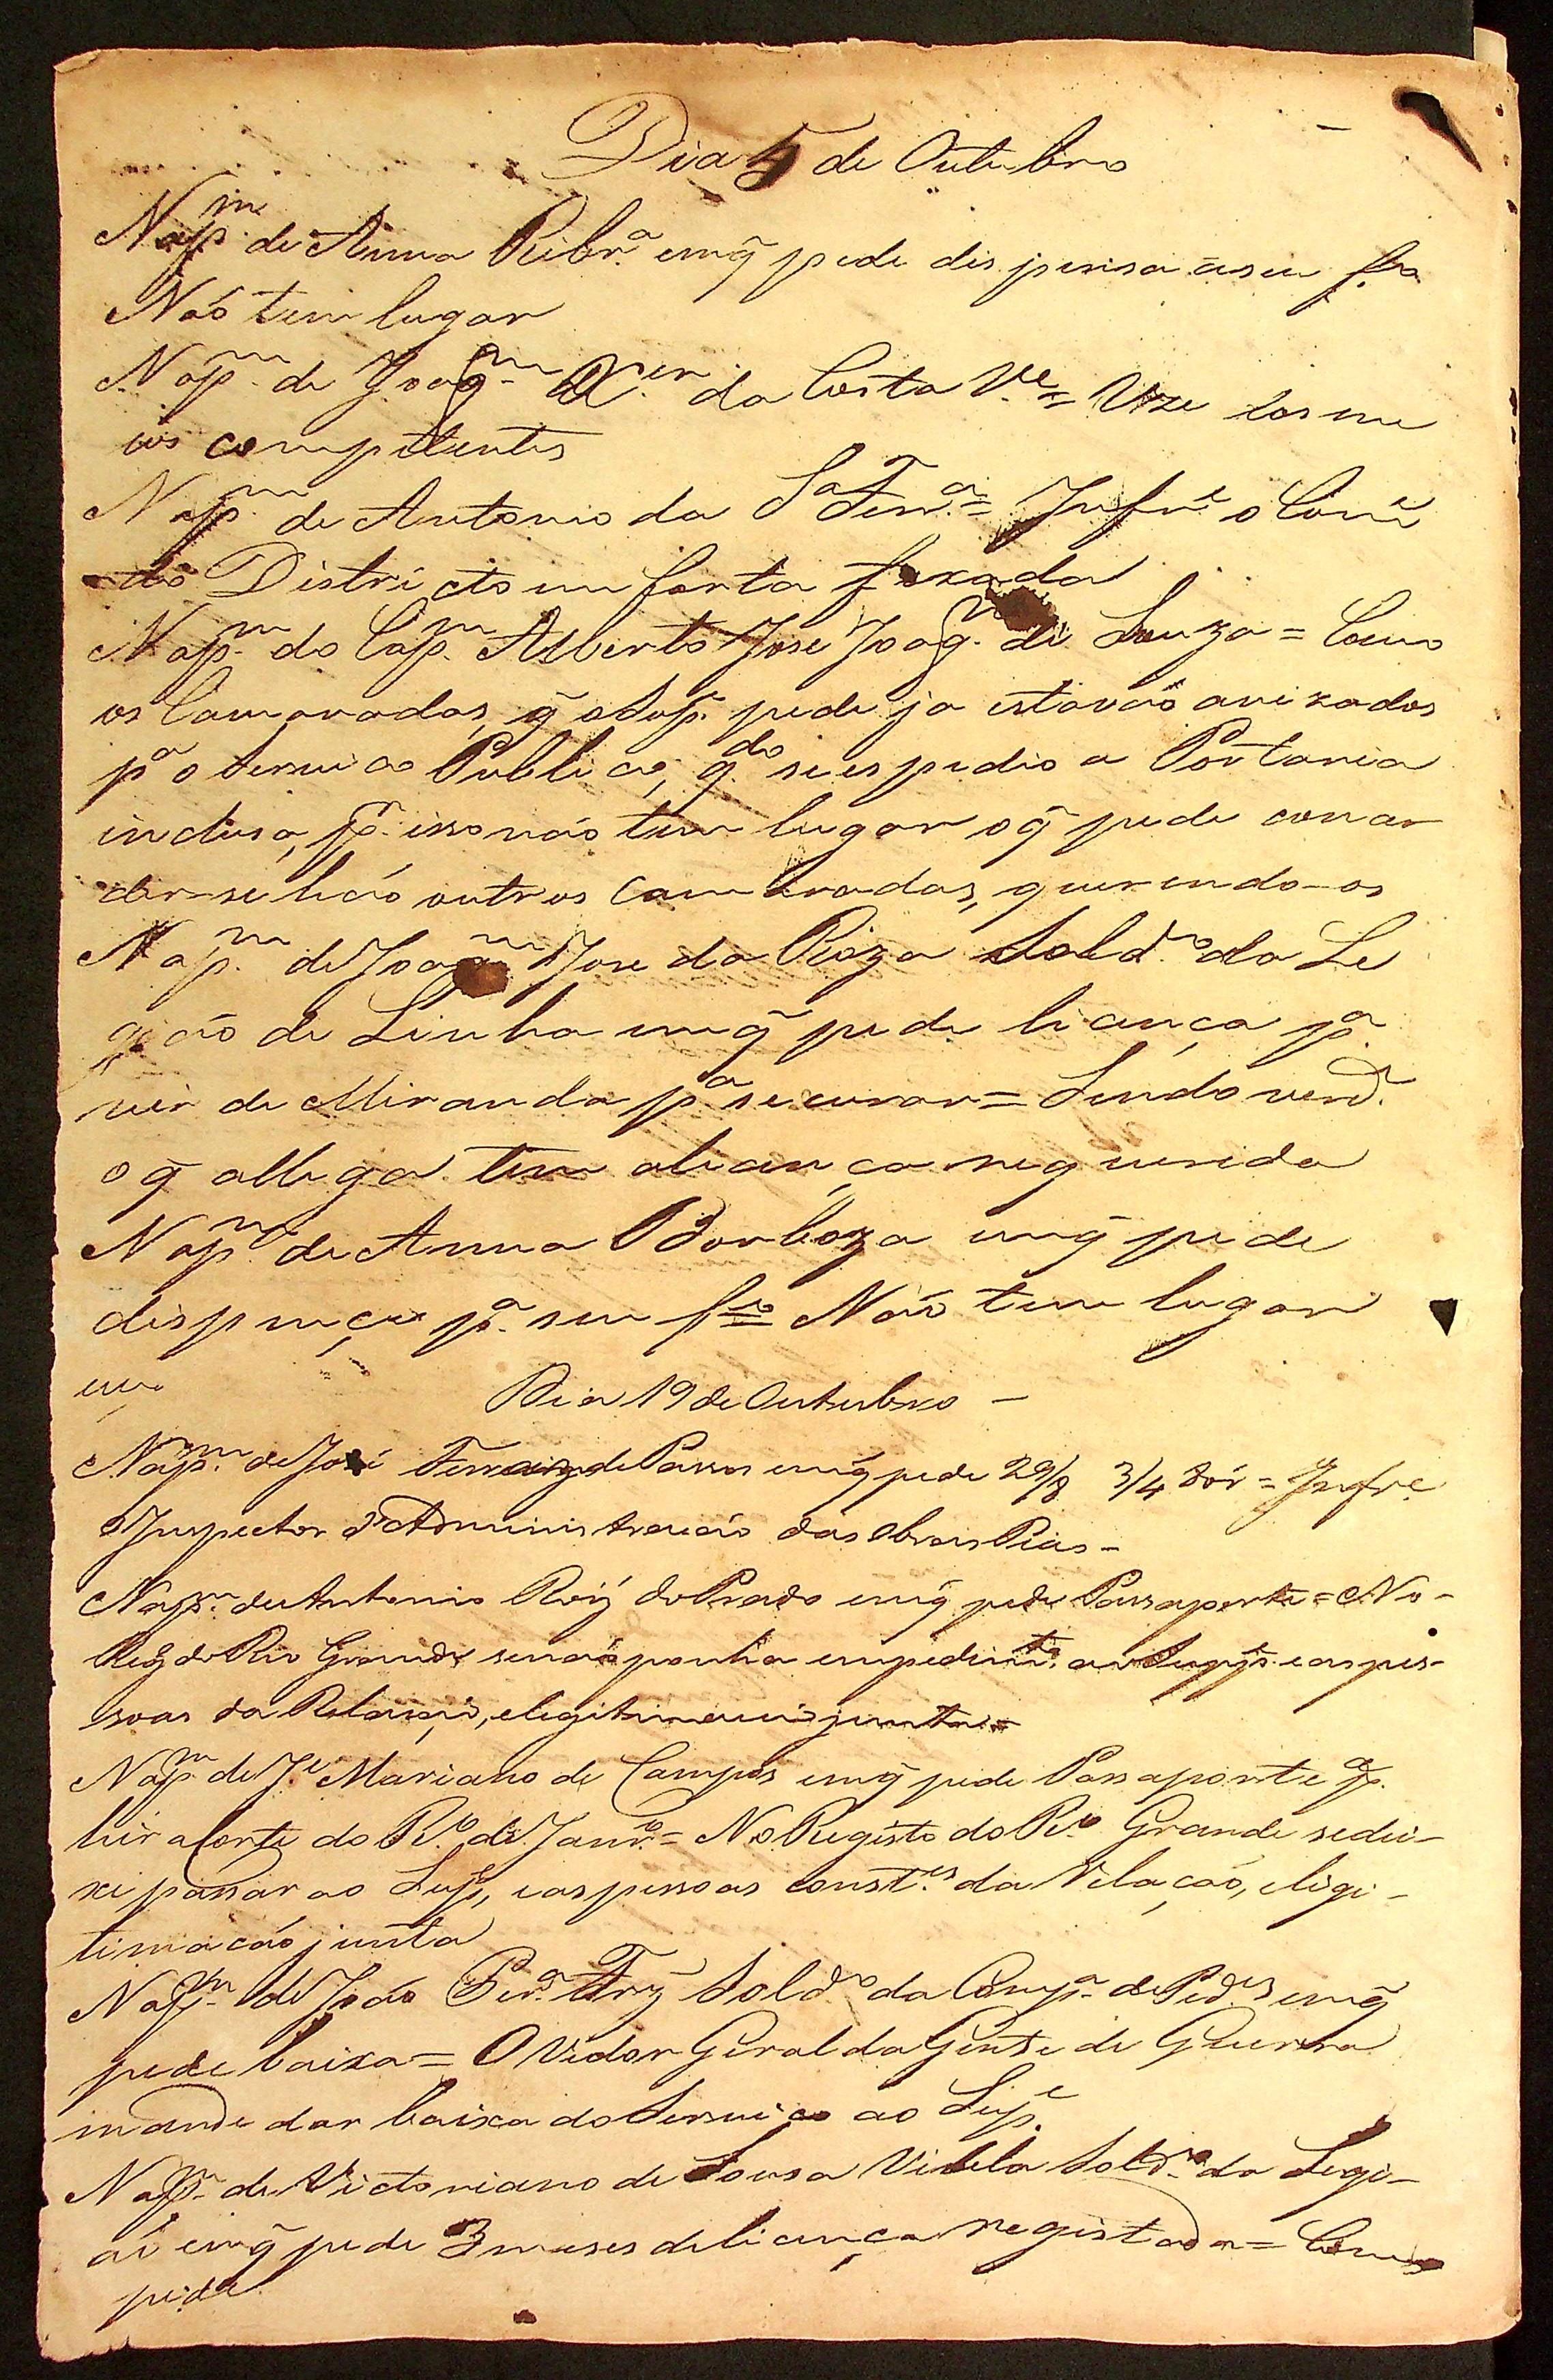 Dia 5 de Outubro
Nap.m de Anna Ribr.a emq̃ pede dispensa aseu f.o
Não tem lugar
Nap.m de Joaq.m X.er da Costa V.e = Uze dos me
ios competentes
Nap.m de Antonio da S.a Ferr.a = Infr.e o Com.e
do Districto em Carta fexada
Nap.m do Cap.m Alberto Jose Joaq.m de Souza = Como
os Camaradas, q̃ o Sup.e pede ja estavão avizados
p.a o servico Publico, q.do se espedio a Portaria
incluza, p.r isso não tem lugar oq̃ pede
dar-se hão outros Camaradas, querendo-os
Nap.m de Joaq.m Jose da Roza Sold.o da Le
gião de Linha emq̃ pede licença p.a
vir de Miranda p.a se curar = Sendo verd.e
oq̃ allega tem a licença requerida
Nap.m de Anna Barboza emq̃ pede
dispença p.a seu f.o Não tem lugar
Dia 19 de Outubro -
Nap.m de José Ferraz de Passos emq̃ pede 29/8 3/4 = Infr.e
o Inspector d'Administração das Obras Pias -
Nap.m de Antonio Roiz do Prado emq̃ pede Passaporte = No -
Reg.o do Rio Grande senão ponha empedim.to ao Supp.e e as pes-
soas da Relação, elegitimação junta =
Nap.m de J.e Mariano de Campos emq̃ pede Passaporte p.a
hir a Corte do R.o de Janr.o = No Registo do R.o Grande sedei-
xe passar ao Sup.e, e as pessoas const.es da Relação, eligi-
timação junta
Nap.m de João Per.a Sold.o da Comp.a de Ped.es emq̃
pede baixa = O Vedor Geral da Gente de Guerra
mande dar baixa do Serviço ao Sup.e
Nap.m de Victoriano de Sousa Vilela Sold.o da Legi-
ão emq̃ pede 3 meses de licença registada = Como
pede